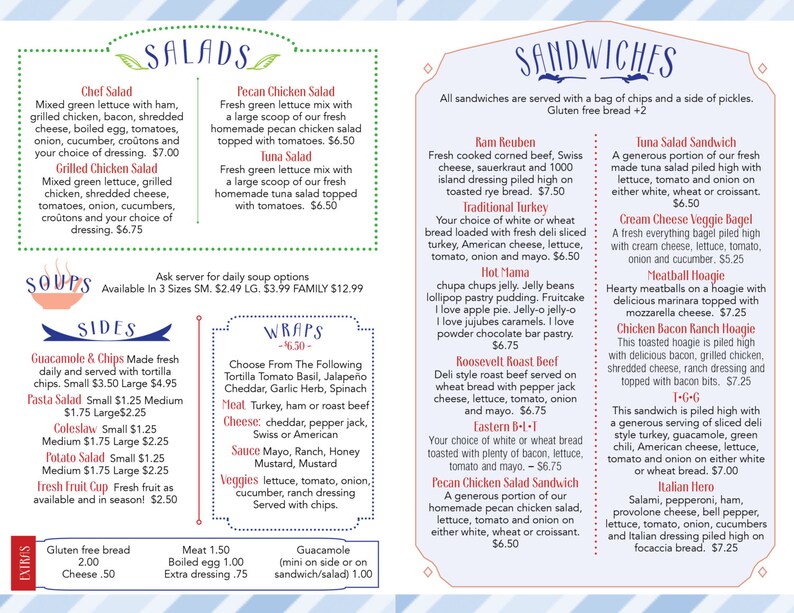 SALADS
Chef Salad
Mixed green lettuce with ham,
grilled chicken, bacon, shredded
cheese, boiled egg, tomatoes,
onion, cucumber, croûtons and
your choice of dressing. $7.00
Grilled Chicken Salad
Mixed green lettuce, grilled
chicken, shredded cheese,
tomatoes, onion, cucumbers,
croûtons and your choice of
dressing. $6.75
Pecan Chicken Salad
Fresh green lettuce mix with
a large scoop of our fresh
homemade pecan chicken salad
topped with tomatoes. $6.50
Tuna Salad
Fresh green lettuce mix with
a large scoop of our fresh
homemade tuna salad topped
with tomatoes. $6.50
SOUPS
Ask server for daily soup options
Available In 3 Sizes SM. $2.49 LG. $3.99 FAMILY $12.99
SIDES
Guacamole & Chips Made fresh
daily and served with tortilla
chips. Small $3.50 Large $4.95
Pasta Salad Small $1.25 Medium
$1.75 Large$2.25
Coleslaw Small $1.25
Medium $1.75 Large $2.25
Potato Salad Small $1.25
Medium $1.75 Large $2.25
Fresh Fruit Cup Fresh fruit as
available and in season! $2.50
WRAPS
~$6.50~
Choose From The Following
Tortilla Tomato Basil, Jalapeño
Cheddar, Garlic Herb, Spinach
Meat Turkey, ham or roast beef
Cheese: cheddar, pepper jack,
Swiss or American
Sauce Mayo, Ranch, Honey
Mustard, Mustard
Veggies lettuce, tomato, onion,
cucumber, ranch dressing
Served with chips.
EXTRAS
Gluten free bread
2.00
Cheese .50
Meat 1.50
Boiled egg 1.00
Extra dressing .75
Guacamole
(mini on side or on
sandwich/salad) 1.00
SANDWICHES
All sandwiches are served with a bag of chips and a side of pickles.
Gluten free bread +2
Ram Reuben
Fresh cooked corned beef, Swiss
cheese, sauerkraut and 1000
island dressing piled high on
toasted rye bread. $7.50
Traditional Turkey
Your choice of white or wheat
bread loaded with fresh deli sliced
turkey, American cheese, lettuce,
tomato, onion and mayo. $6.50
Hot Mama
chupa chups jelly. Jelly beans
lollipop pastry pudding. Fruitcake
I love apple pie. Jelly-o jelly-o
I love jujubes caramels. I love
powder chocolate bar pastry.
$6.75
Roosevelt Roast Beef
Deli style roast beef served on
wheat bread with pepper jack
cheese, lettuce, tomato, onion
and mayo. $6.75
Eastern B•L•T
Your choice of white or wheat bread
toasted with plenty of bacon, lettuce,
tomato and mayo. – $6.75
Pecan Chicken Salad Sandwich
A generous portion of our
homemade pecan chicken salad,
lettuce, tomato and onion on
either white, wheat or croissant.
$6.50
Tuna Salad Sandwich
A generous portion of our fresh
made tuna salad piled high with
lettuce, tomato and onion on
either white, wheat or croissant.
$6.50
Cream Cheese Veggie Bagel
A fresh everything bagel piled high
with cream cheese, lettuce, tomato,
onion and cucumber. $5.25
Meatball Hoagie
Hearty meatballs on a hoagie with
delicious marinara topped with
mozzarella cheese. $7.25
Chicken Bacon Ranch Hoagie
This toasted hoagie is piled high
with delicious bacon, grilled chicken,
shredded cheese, ranch dressing and
topped with bacon bits. $7.25
T•G•G
This sandwich is piled high with
a generous serving of sliced deli
style turkey, guacamole, green
chili, American cheese, lettuce,
tomato and onion on either white
or wheat bread. $7.00
Italian Hero
Salami, pepperoni, ham,
provolone cheese, bell pepper,
lettuce, tomato, onion, cucumbers
and Italian dressing piled high on
focaccia bread. $7.25